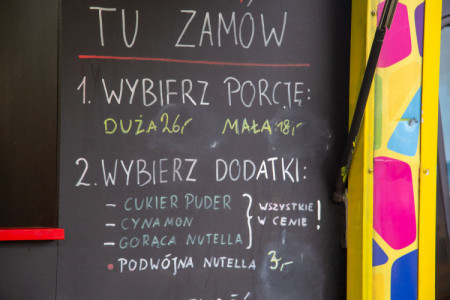 TU ZAMÓW
1. WYBIERZ PORCJĘ:
DUŻA 26,- MAŁA 18,-
2. WYBIERZ DODATKI:
- CUKIER PUDER
- CYNAMON
- GORĄCA NUTELLA
WSZYSTKIE
W CENIE!
• PODWÓJNA NUTELLA 3,-